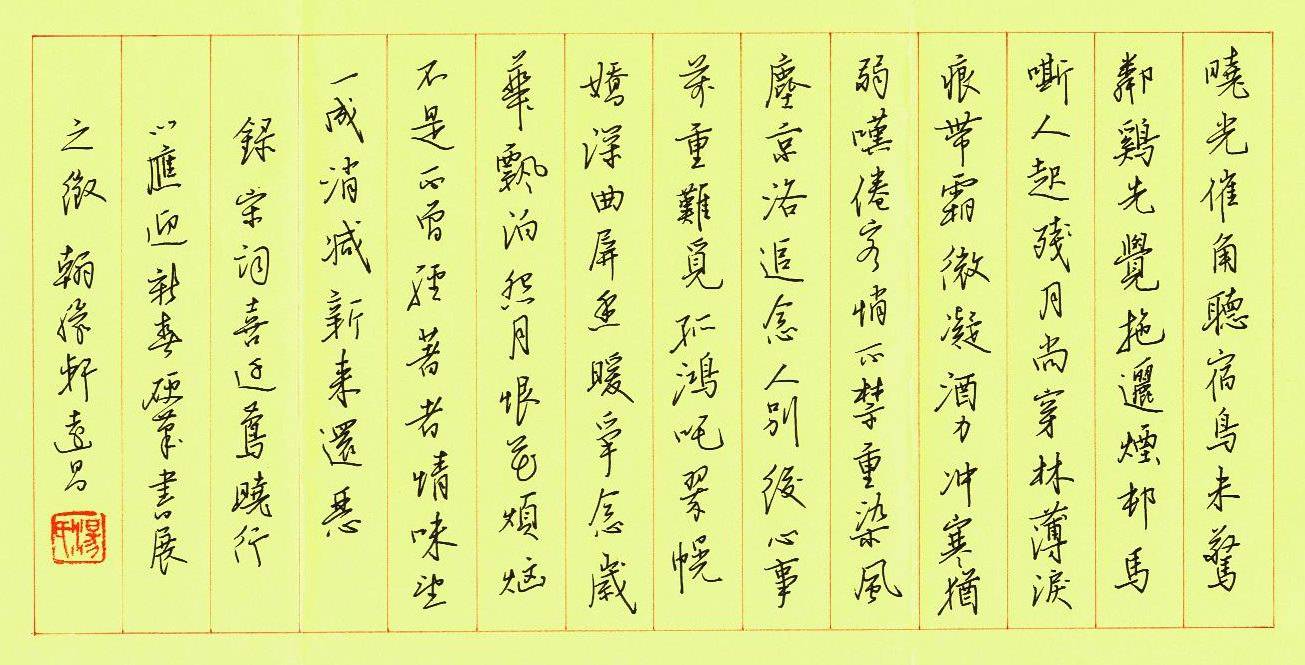 曉光催角聽宿鳥未驚
鄰鷄先覺拖邐煙邨馬
嘶人起殘月尚穿林薄淚
痕帶霜微凝酒力冲寒猶
弱嘆倦客悄不禁重染風
塵京洛追念人別後心事
萬重難覓孤鴻吒翠幌
嬌深曲屏香暖爭念歲
華飄泊怨月恨花煩惱
不是不曾經著者情味望
一成消减新来還惡
錄宋詞喜迁鶯曉行
以應迎新春硬筆書展
之徵 翰緣軒遠昌